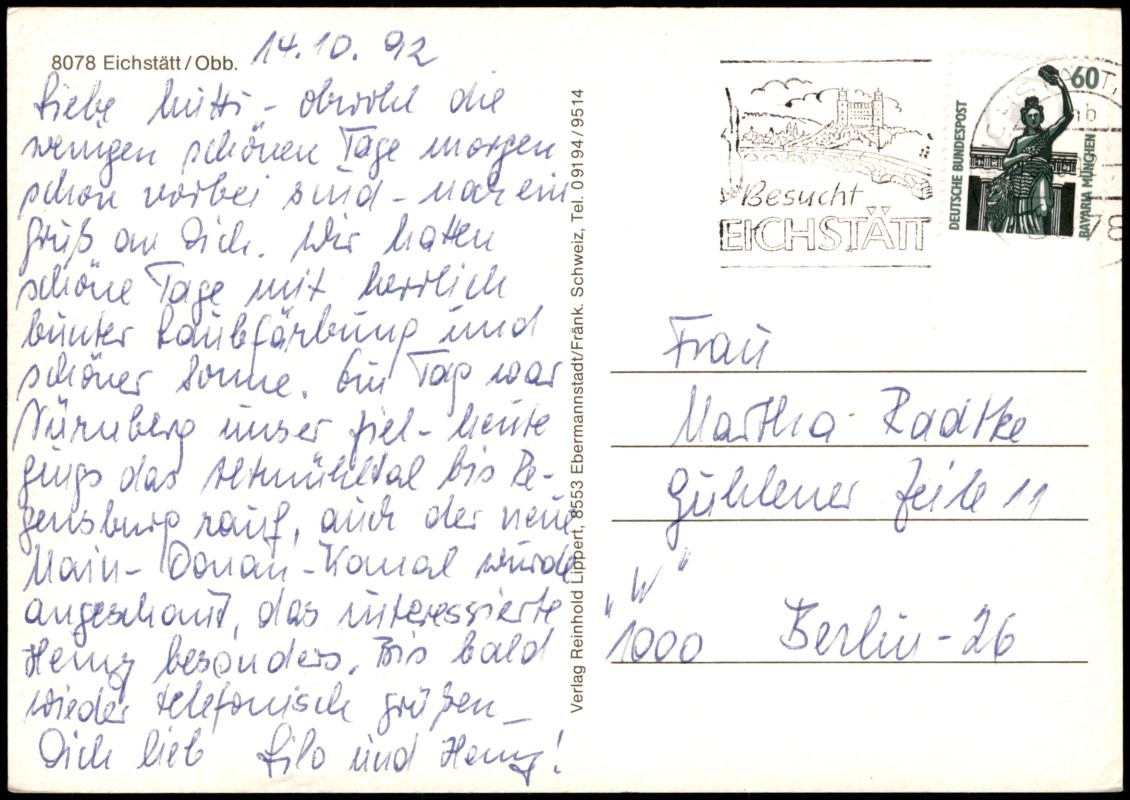 8078 Eichstätt/Obb. 14.10.92
Liebe Mutti - obwohl die
wenigen schönen Tage morgen
schon vorbei sind - nur ein
Gruß an Dich. Wir hatten
schöne Tage mit herrlich
bunter Laubfärbung und
schöner Sonne. Ein Tag war
Nürnberg unser Ziel - heute
gings das Altmühltal bis Re-
gensburg rauf, auch der neue
Main-Donau-Kanal wurde
angeschaut, das interessierte
Heinz besonders. Bis bald
wieder telefonisch grüßen
Dich lieb Lilo und Heinz!
Verlag Reinhold Lippert, 8553 Ebermannstadt/Fränk. Schweiz, Tel. 09194/9514
Besucht
EICHSTÄTT
60
DEUTSCHE BUNDESPOST
BAVARIA MÜNCHEN
Frau
Martha Radtke
Gühlener Zeile 11
"W"
1000 Berlin-26